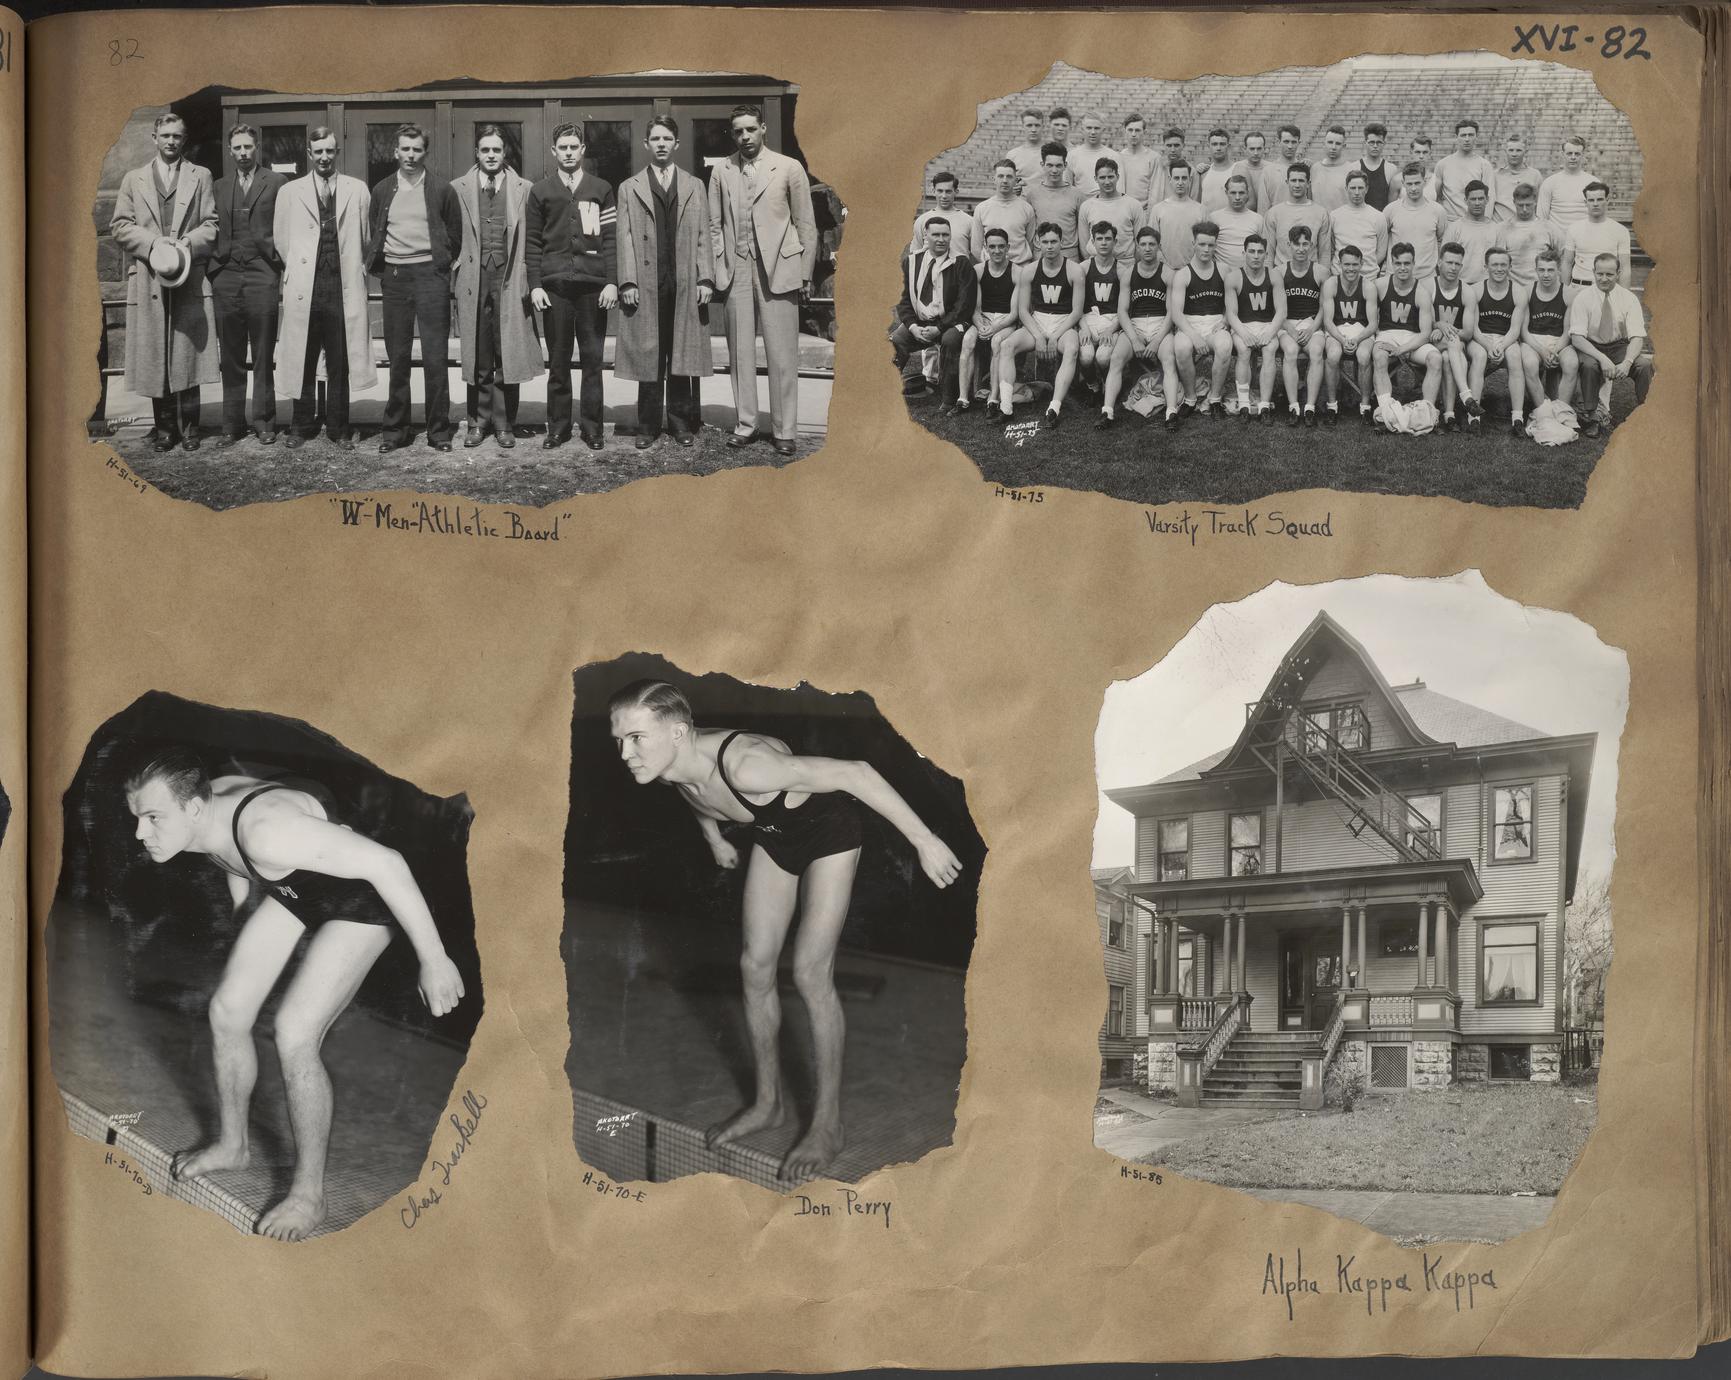 82
XVI-82
W
H-51-69
"W"-Men-"Athletic Board"
W
W
WISCONSIN
W
W
W
W
WISCONSIN
WISCONSIN
PHOTOART
H-51-75
A
H-51-75
Varsity Track Squad
PHOTOART
H-51-70
H-51-70-D
Chas Traskell
PHOTOART
H-51-70
E
H-51-70-E
Don Perry
H-51-85
Alpha Kappa Kappa